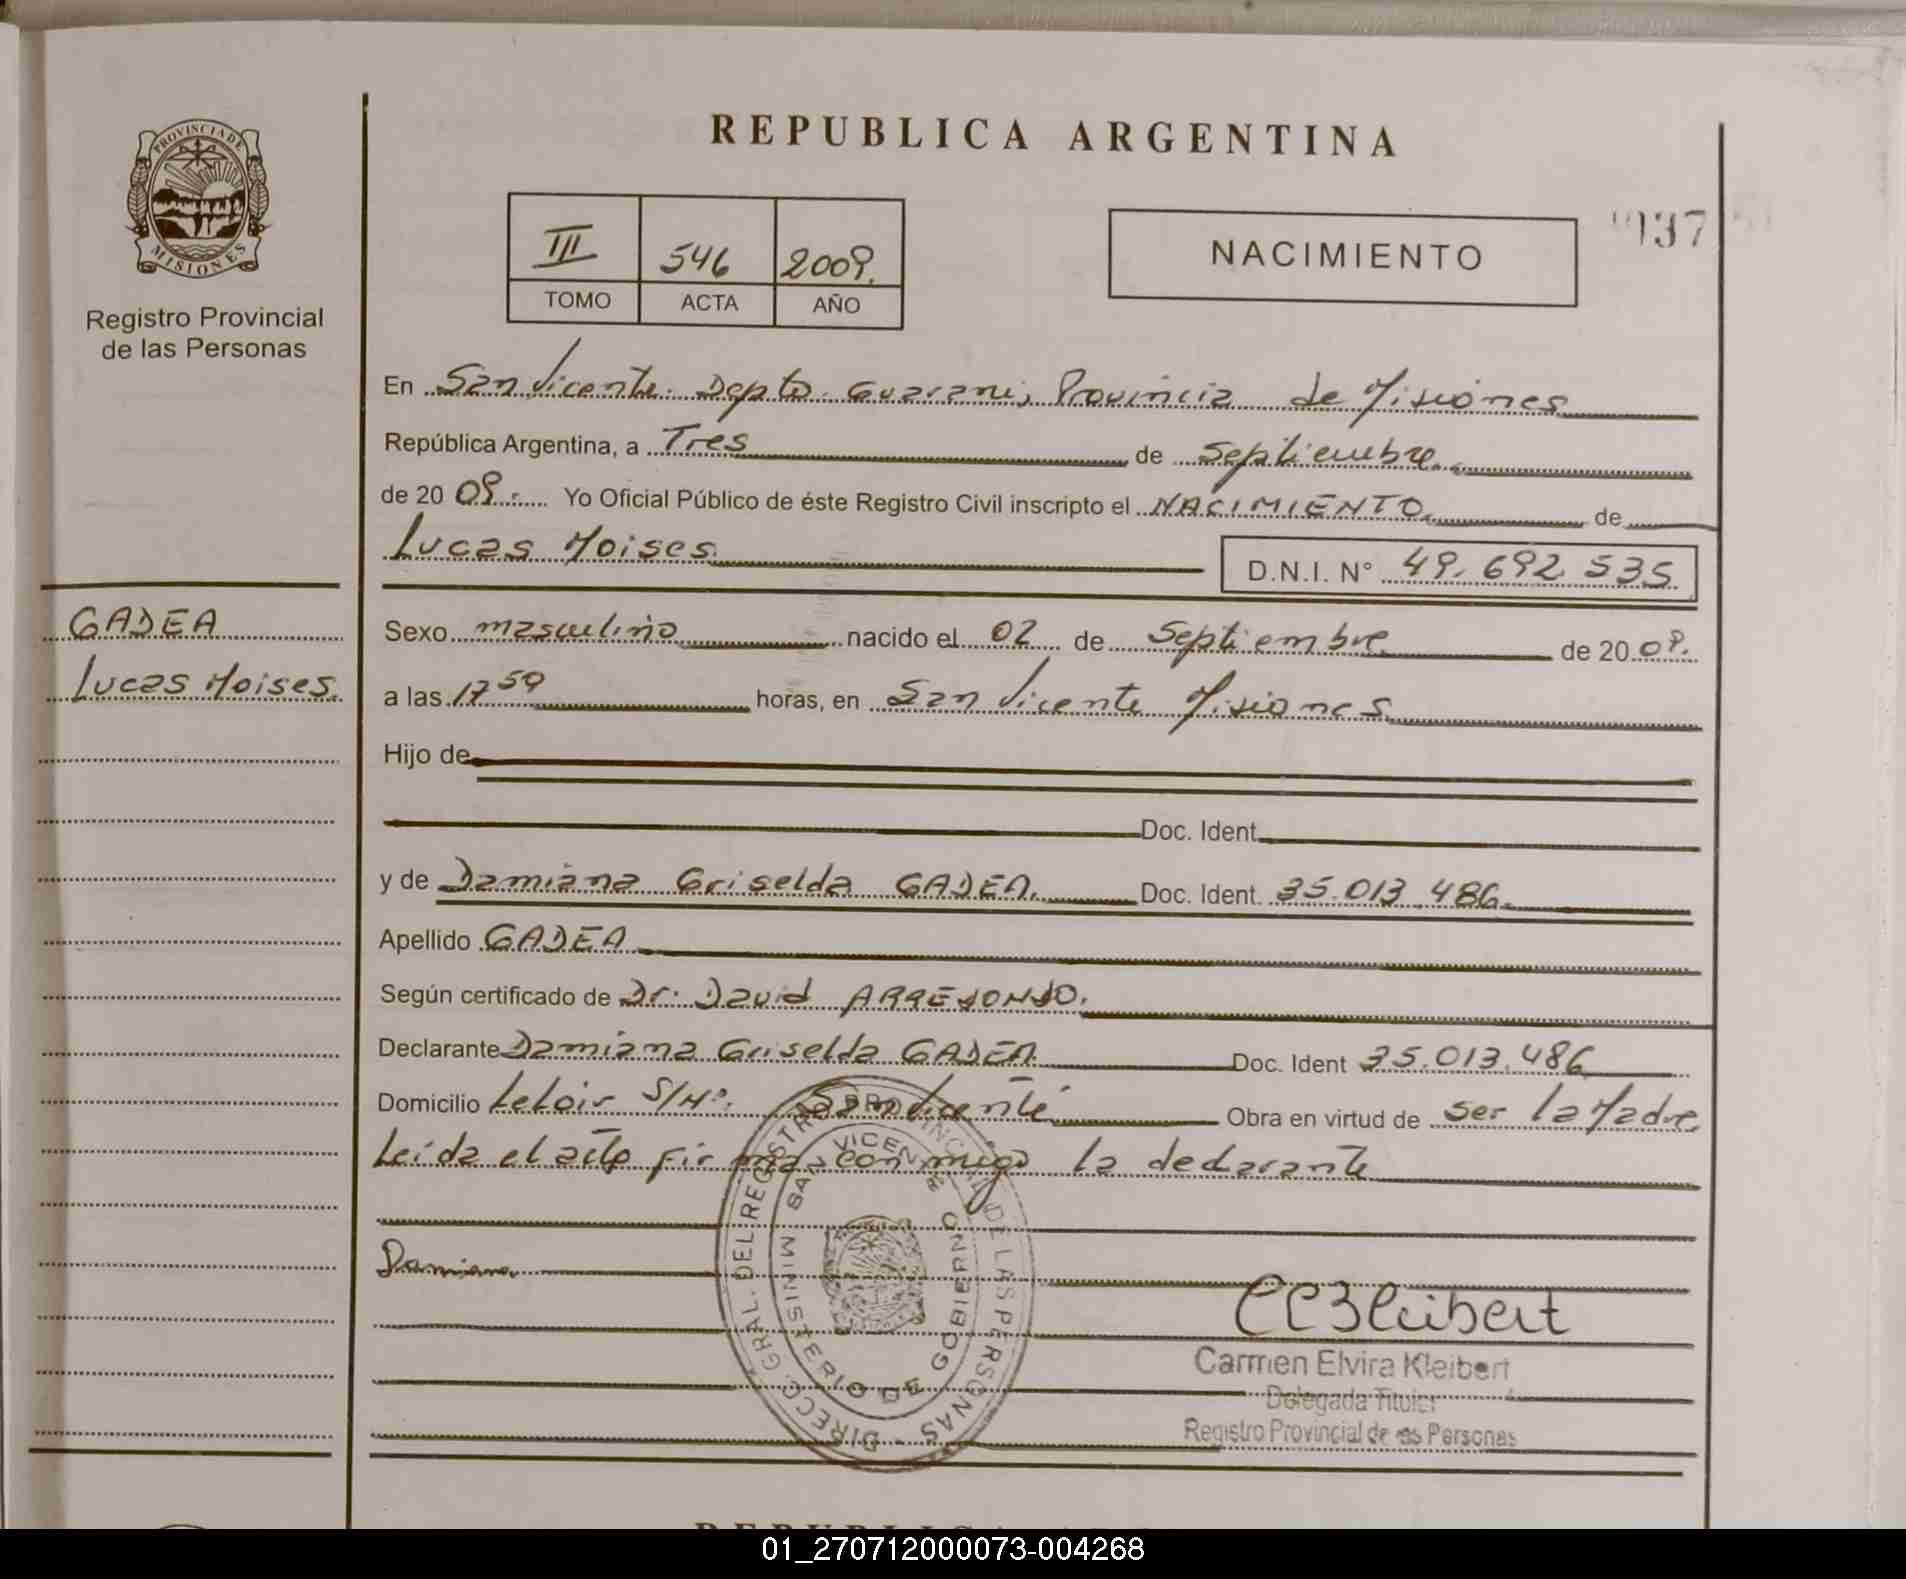 REPUBLICA ARGENTINA
PROVINCIA DE
MISIONES
Registro Provincial
de las Personas
III 546 2009.
TOMO ACTA AÑO
NACIMIENTO
137
En San Vicente. Depto. Guarani, Provincia de Misiones
República Argentina, a Tres de Septiembre
de 2009. Yo Oficial Público de éste Registro Civil inscripto el NACIMIENTO de
Lucas Moises D.N.I. N° 49.692.535
GADEA
Lucas Moises.
Sexo masculino nacido el 02 de Septiembre de 2009.
a las 17 59 horas, en San Vicente Misiones
Hijo de
Doc. Ident.
y de Damiana Griselda GADEA. Doc. Ident. 35.013.486.
Apellido GADEA
Según certificado de Dr. David ARREDONDO.
Declarante Damiana Griselda GADEA Doc. Ident 35.013.486
Domicilio LeLoir S/Nº. San Vicente Obra en virtud de ser la Madre
Leida el acta firma con migo la declarante
Damiana
DIRECC. GRAL. DEL REGISTRO PROVINCIAL DE LAS PERSONAS -
MINISTERIO DE GOBIERNO
SAN VICENTE
CEKleibert
Carmen Elvira Kleibert
Delegada Titular
Registro Provincial de las Personas
REPUBLICA
01_270712000073-004268